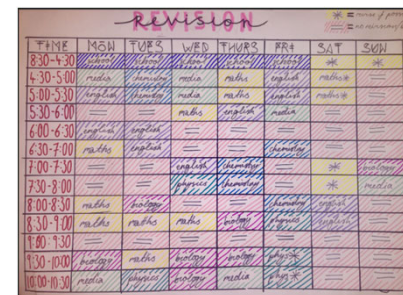 REVISION
revision
TIME MON TUES WED THURS FRI SAT SUN
8:30-4:30 school school school school school * *
4:30-5:00 media chemistry media maths english maths* =
5:00-5:30 english chemistry media english english maths* =
5:30-6:00 = = maths english media = =
6:00-6:30 english english = = = = =
6:30-7:00 maths english = = chemistry = =
7:00-7:30 = = english chemistry = * biology
7:30-8:00 = = physics chemistry = * media
8:00-8:30 maths biology = = chemistry english =
8:30-9:00 maths maths maths biology chemistry english =
9:00-9:30 = = = = = = =
9:30-10:00 biology maths biology biology phys* = =
10:00-10:30 media physics biology media phys* = =